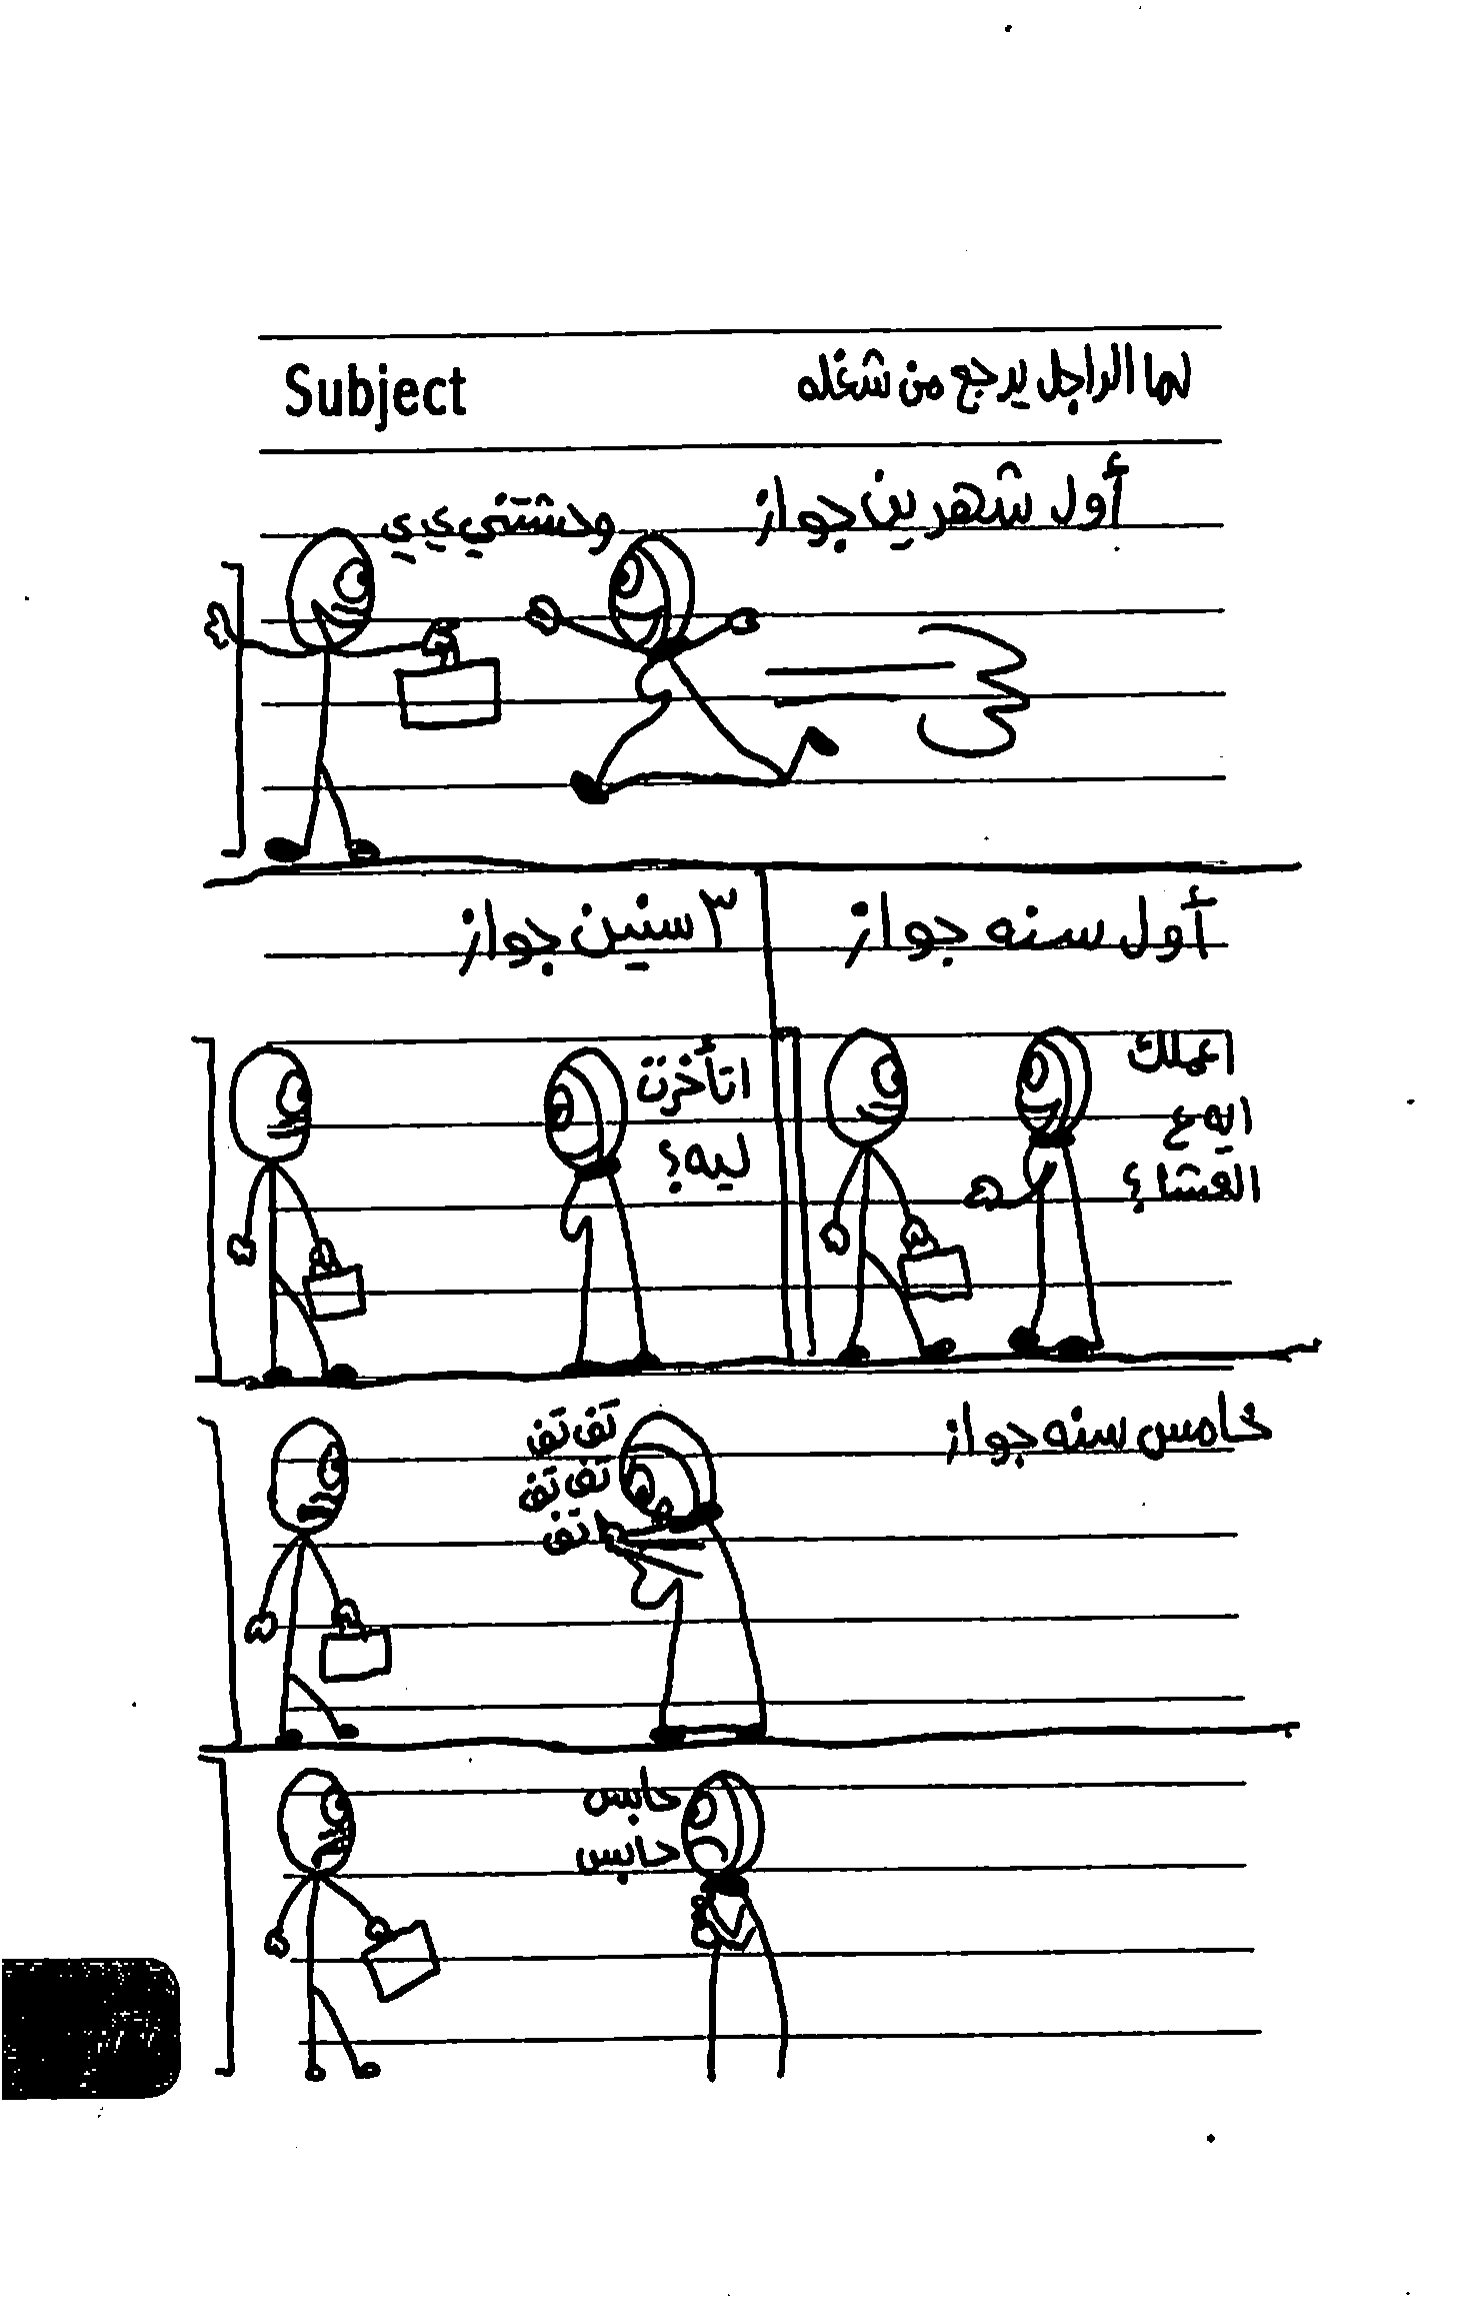 Subject
لما الراجل يرجع من شغله
أول شهرين جواز
وحشتني ي ي
أول سنه جواز
اعملك
ايه ع
العشا؟
٣ سنين جواز
اتأخرت
ليه؟
خامس سنه جواز
تف تف
تف تف
تف
حابس
حابس